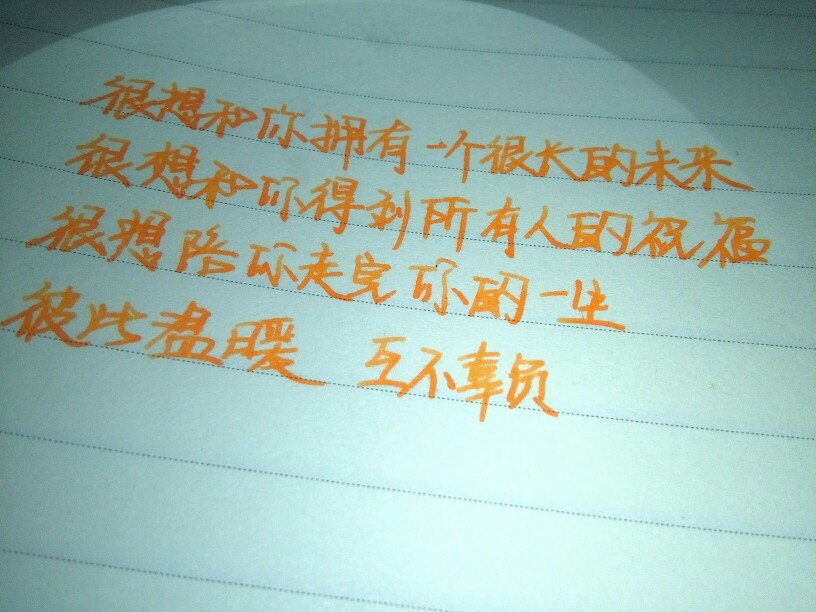 很想和你拥有一个很长的未来
很想和你得到所有人的祝福
很想陪你走完你的一生
彼此温暖 互不辜负